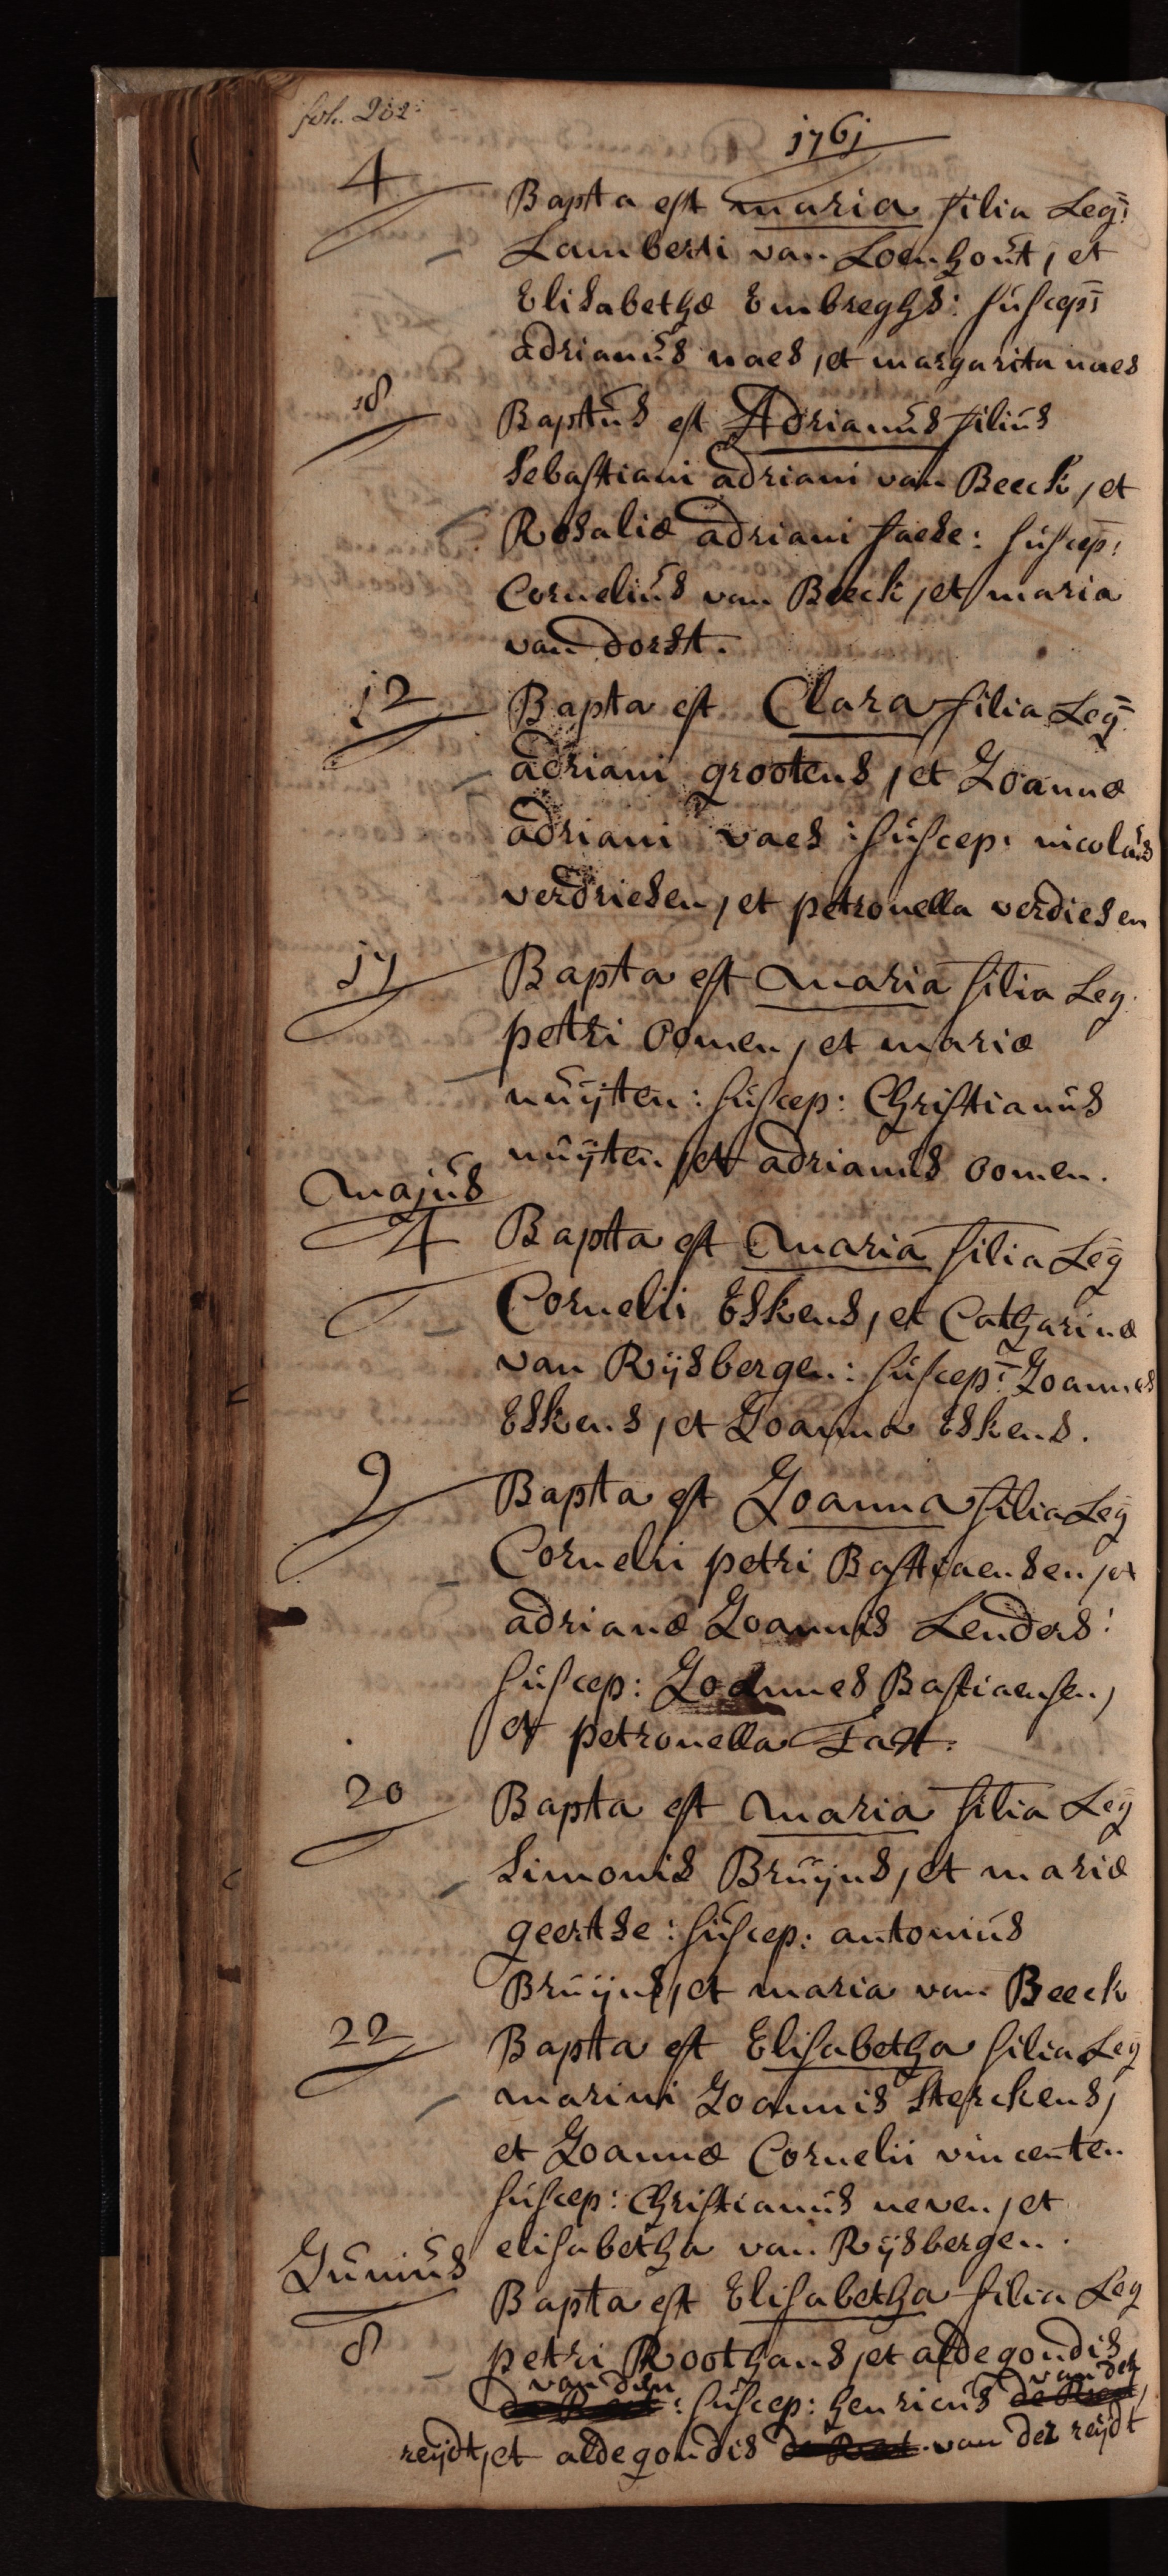 fol. 202:
1761
4 Bapta est maria filia Leg:
Lamberti van Loenhout, et
Elisabethæ Embreghs: suscep:
adrianus naes, et margarita naes
8 Baptus est Adrianus filius
Sebastiani adriani van Beeck, et
Rosaliæ adriani faese: suscep:
Cornelius van Beeck, et maria
van dorst.
12 Bapta est Clara filia Leg:
adriani grootens, et Joannæ
adriani vaes: suscep: nicolaus
verdriesen, et petronella verdiesen
17 Bapta est maria filia Leg.
petri oomen, et mariæ
nuijten: suscep: Christianus
nuijten et adrianus oomen.
Majus
4 Bapta est Maria filia Leg
Cornelii Eskens, et Catharinæ
van Rijsbergen: suscep: Joannes
Eskens, et Joanna Eskens.
9 Bapta est Joanna filia Leg
Cornelii petri Bastiaensen, et
adrianæ Joannis Lenders:
suscep: Joannes Bastiaensen,
et petronella Fast.
20 Bapta est Maria filia Leg
Simonis Bruijns, et mariæ
geertse: suscep: antonius
Bruijns, et maria van Beeck
22 Bapta est Elisabetha filia Leg
marini Joannis Sterckens,
et Joannæ Cornelii vincenten
suscep: Christianus neven, et
elisabetha van Rijsbergen.
Junius
8 Bapta est Elisabetha filia Leg
petri Roothans, et aldegondis
van den van der
: suscep: henricus
reijdt, et aldegondis van der reijdt